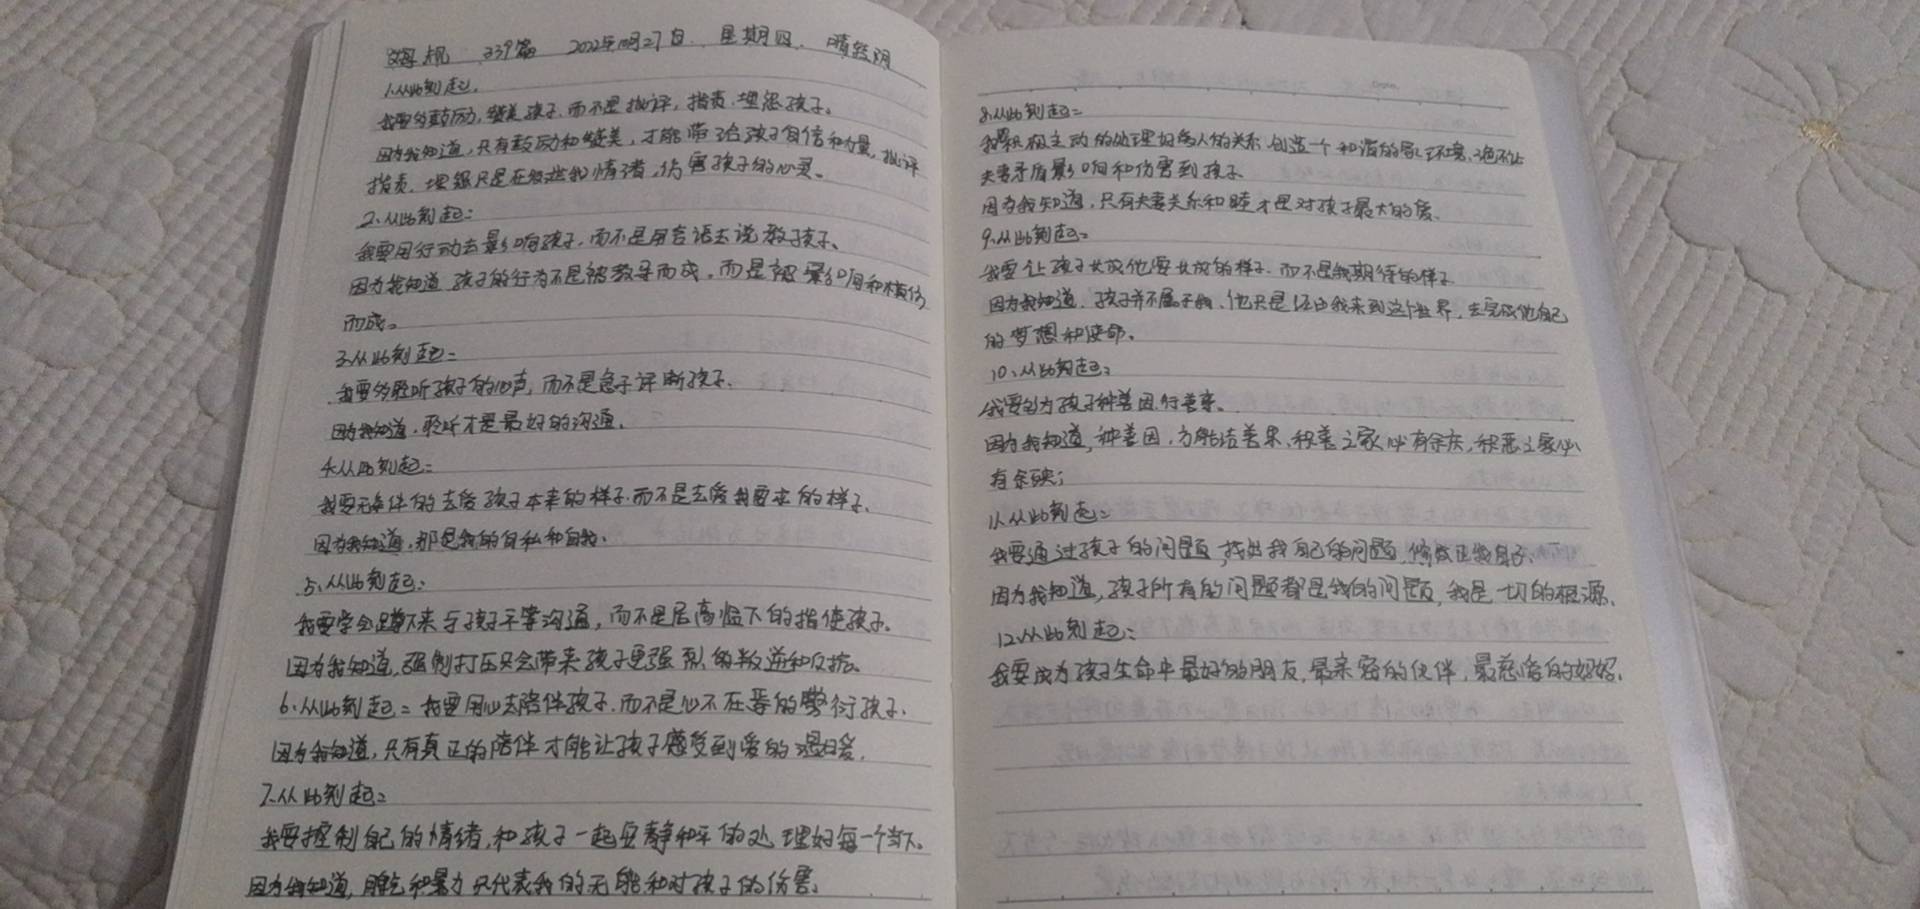 339篇 2022年10月27日 星期四 晴转阴
1.从此刻起,
我要多鼓励,赞美孩子,而不是批评,指责,埋怨孩子。
因为我知道,只有鼓励和赞美,才能带给孩子自信和力量,批评
指责,埋怨只是在发泄我情绪,伤害孩子的心灵。
2、从此刻起:
我要用行动去影响孩子,而不是用言语去说教孩子、
因为我知道,孩子的行为不是被教导而成,而是被影响和模仿
而成。
3、从此刻起:
我要多聆听孩子的心声,而不是急于评断孩子、
因为我知道,聆听才是最好的沟通,
4、从此刻起:
我要无条件的去爱孩子本来的样子,而不是去爱我要求的样子、
因为我知道,那是我的自私和自我、
5、从此刻起:
我要学会蹲下来与孩子平等沟通,而不是居高临下的指使孩子。
因为我知道,强制打压只会带来孩子更强烈的叛逆和反抗。
6、从此刻起:我要用心去陪伴孩子,而不是心不在焉的敷衍孩子、
因为我知道,只有真正的陪伴才能让孩子感受到爱的温暖,
7、从此刻起:
我要控制自己的情绪,和孩子一起安静和平的处理好每一个当下。
因为我知道,脾气和暴力只代表我的无能和对孩子的伤害、
8、从此刻起:
我要积极主动的处理好家人的关系,创造一个和谐的家庭环境,绝不让
夫妻矛盾影响和伤害到孩子、
因为我知道,只有夫妻关系和睦才是对孩子最大的爱、
9、从此刻起:
我要让孩子长成他要长成的样子,而不是我期待的样子
因为我知道,孩子并不属于我、他只是经由我来到这个世界,去完成他自己
的梦想和使命、
10、从此刻起:
我要多为孩子种善因,行善事、
因为我知道,种善因,方能结善果,积善之家必有余庆,积恶之家必
有余殃;
11、从此刻起:
我要通过孩子的问题,找出我自己的问题,修正我自己、
因为我知道,孩子所有的问题都是我的问题,我是一切的根源、
12、从此刻起:
我要成为孩子生命中最好的朋友,最亲密的伙伴,最慈爱的妈妈、